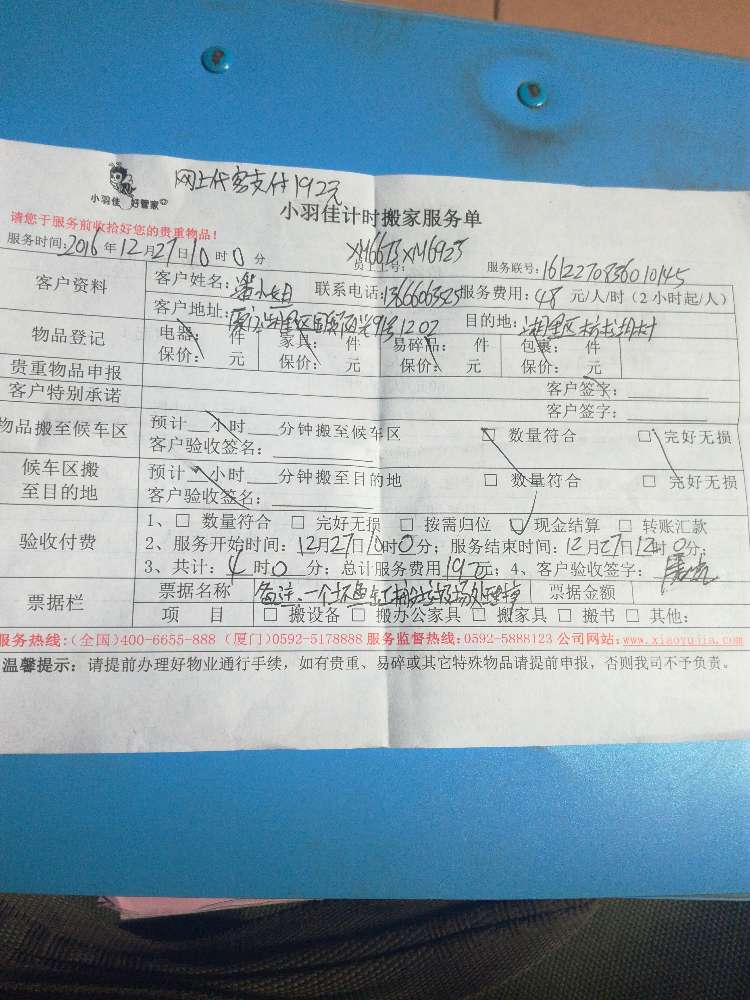 网上代客支付192元
小羽佳 好管家
小羽佳计时搬家服务单
请您于服务前收拾好您的贵重物品！
服务时间:2016年12月27日10时0分 员工工号: XM6673 XM6923 服务联号:1612270836010145
客户资料 客户姓名: 潘小姐 联系电话: 服务费用: 48 元/人/时（2小时起/人）
客户地址: 厦门 湖里区 91号1202 目的地: 湖里区
物品登记 电器: 件 家具: 件 易碎品: 件 包裹: 件
保价: 元 保价: 元 保价: 元 保价: 元
贵重物品申报 客户签字:
客户特别承诺 客户签字:
物品搬至候车区 预计 小时 分钟搬至候车区 □ 数量符合 □ 完好无损
客户验收签名:
候车区搬至目的地 预计 小时 分钟搬至目的地 □ 数量符合 □ 完好无损
客户验收签名:
验收付费 1、□ 数量符合 □ 完好无损 □ 按需归位 ☑ 现金结算 □ 转账汇款
2、服务开始时间: 12月27日10时0分; 服务结束时间: 12月27日12时0分;
3、共计: 4时0分; 总计服务费用192元; 4、客户验收签字:
票据栏 票据名称 备注:一个 票据金额
项 目 □ 搬设备 □ 搬办公家具 □ 搬家具 □ 搬书 □ 其他:
服务热线:(全国)400-6655-888 (厦门)0592-5178888 服务监督热线:0592-5888123 公司网站:www.xiaoyujia.com
温馨提示: 请提前办理好物业通行手续，如有贵重、易碎或其它特殊物品请提前申报，否则我司不予负责。